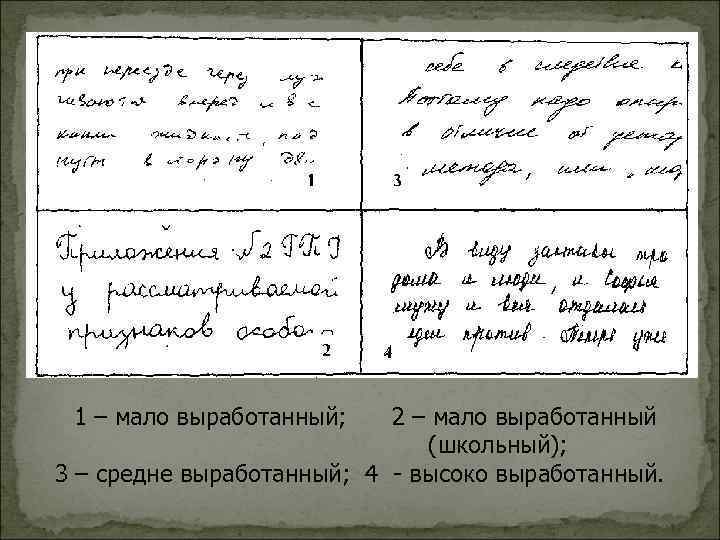 при переезде через
чиваются вперед и в с
капли жидкости, под
нуты в сторону дв
1
себе в следствие к
Поэтому надо опир
в отличие от
метода, или
3
Приложения №2 ГПУ
у рассматриваемой
признаков особо
2
В виду заставы про
дома и люди, и
мужу и вся отдалась
один против. Теперь уже
4
1 – мало выработанный; 2 – мало выработанный
(школьный);
3 – средне выработанный; 4 - высоко выработанный.